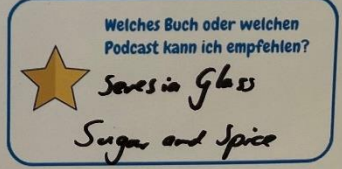 Welches Buch oder welchen
Podcast kann ich empfehlen?
Glass
Sugar and Spice